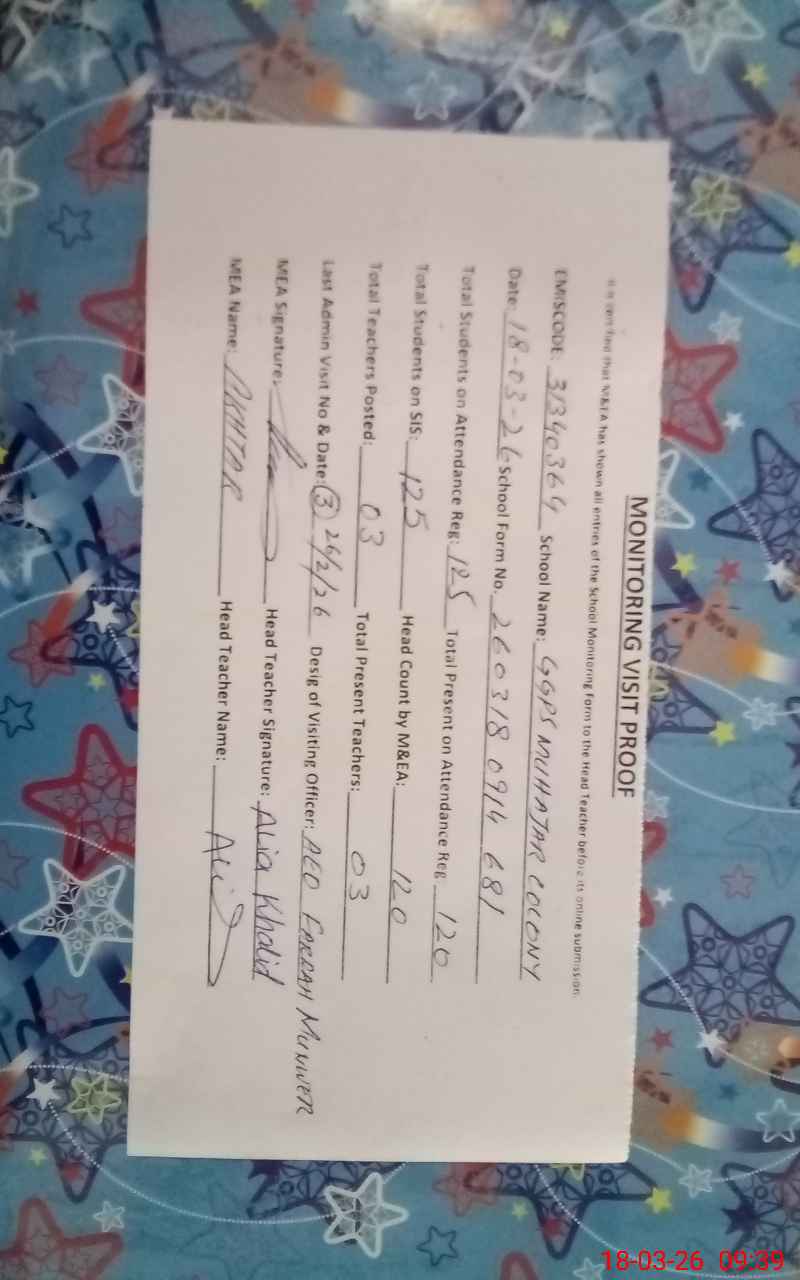 MONITORING VISIT PROOF
It is certified that M&EA has shown all entries of the School Monitoring Form to the Head Teacher before its online submission
EMISCODE: 31340364 School Name: GGPS MUHAJAR COLONY
Date: 18-03-26 School Form No. 260318 0914 681
Total Students on Attendance Reg: 125 Total Present on Attendance Reg 120
Total Students on SIS: 125 Head Count by M&EA: 120
Total Teachers Posted: 03 Total Present Teachers: 03
Last Admin Visit No & Date: (3) 26/2/26 Desig of Visiting Officer: AEO FARRAH MUNWER
MEA Signature: Head Teacher Signature: Alia Khalid
MEA Name: AKHTAR Head Teacher Name:
18-03-26 09:39